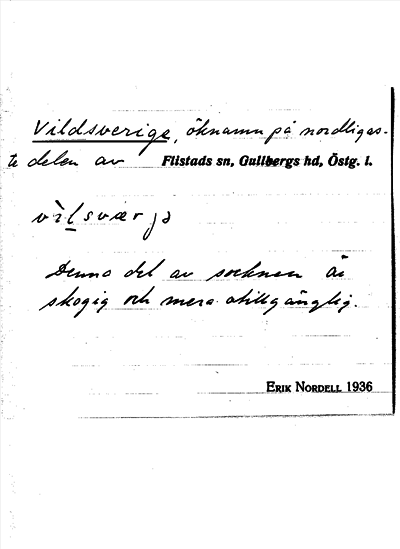 Vildsverige, öknamn på nordligas-
te delen av Flistads sn, Gullbergs hd, Östg. l.
vìlsværjə
Denna del av socknen är
skogig och mera otillgänglig.
ERIK NORDELL 1936